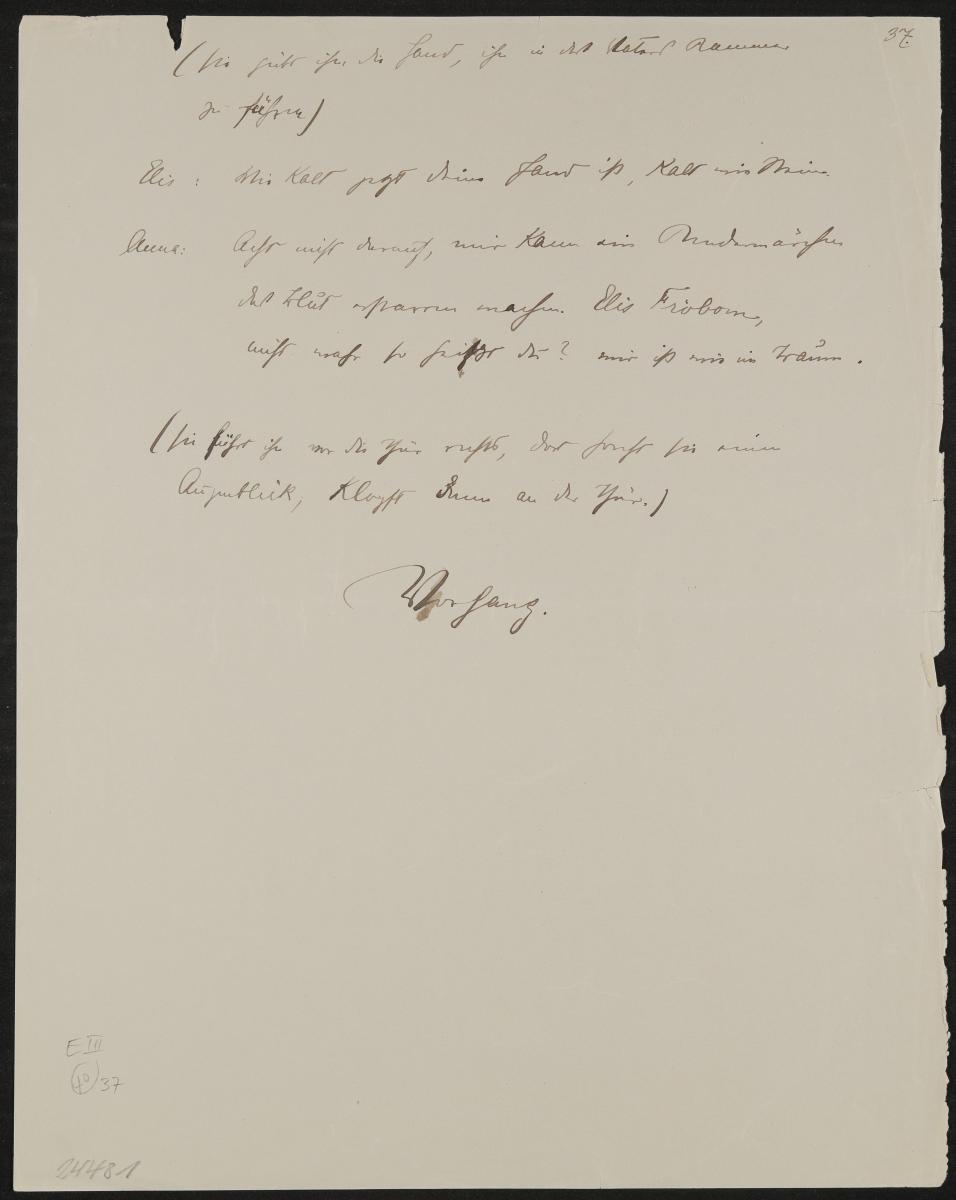 (sie gibt ihm die Hand, ihn in des Vaters Kammer
zu führen)
37.
Elis: Wie kalt jetzt deine Hand ist, kalt wie Stein.
Anna: Acht nicht darauf, mir kann ein Kindermärchen
das Blut erstarren machen. Elis Fröbom,
nicht wahr so heißt du? mir ist wie im Traum.
(sie führt ihn vor die Thür rechts, dort horcht sie einen
Augenblick, klopft dann an der Thür.)
Vorhang.
E III
40 37
24481